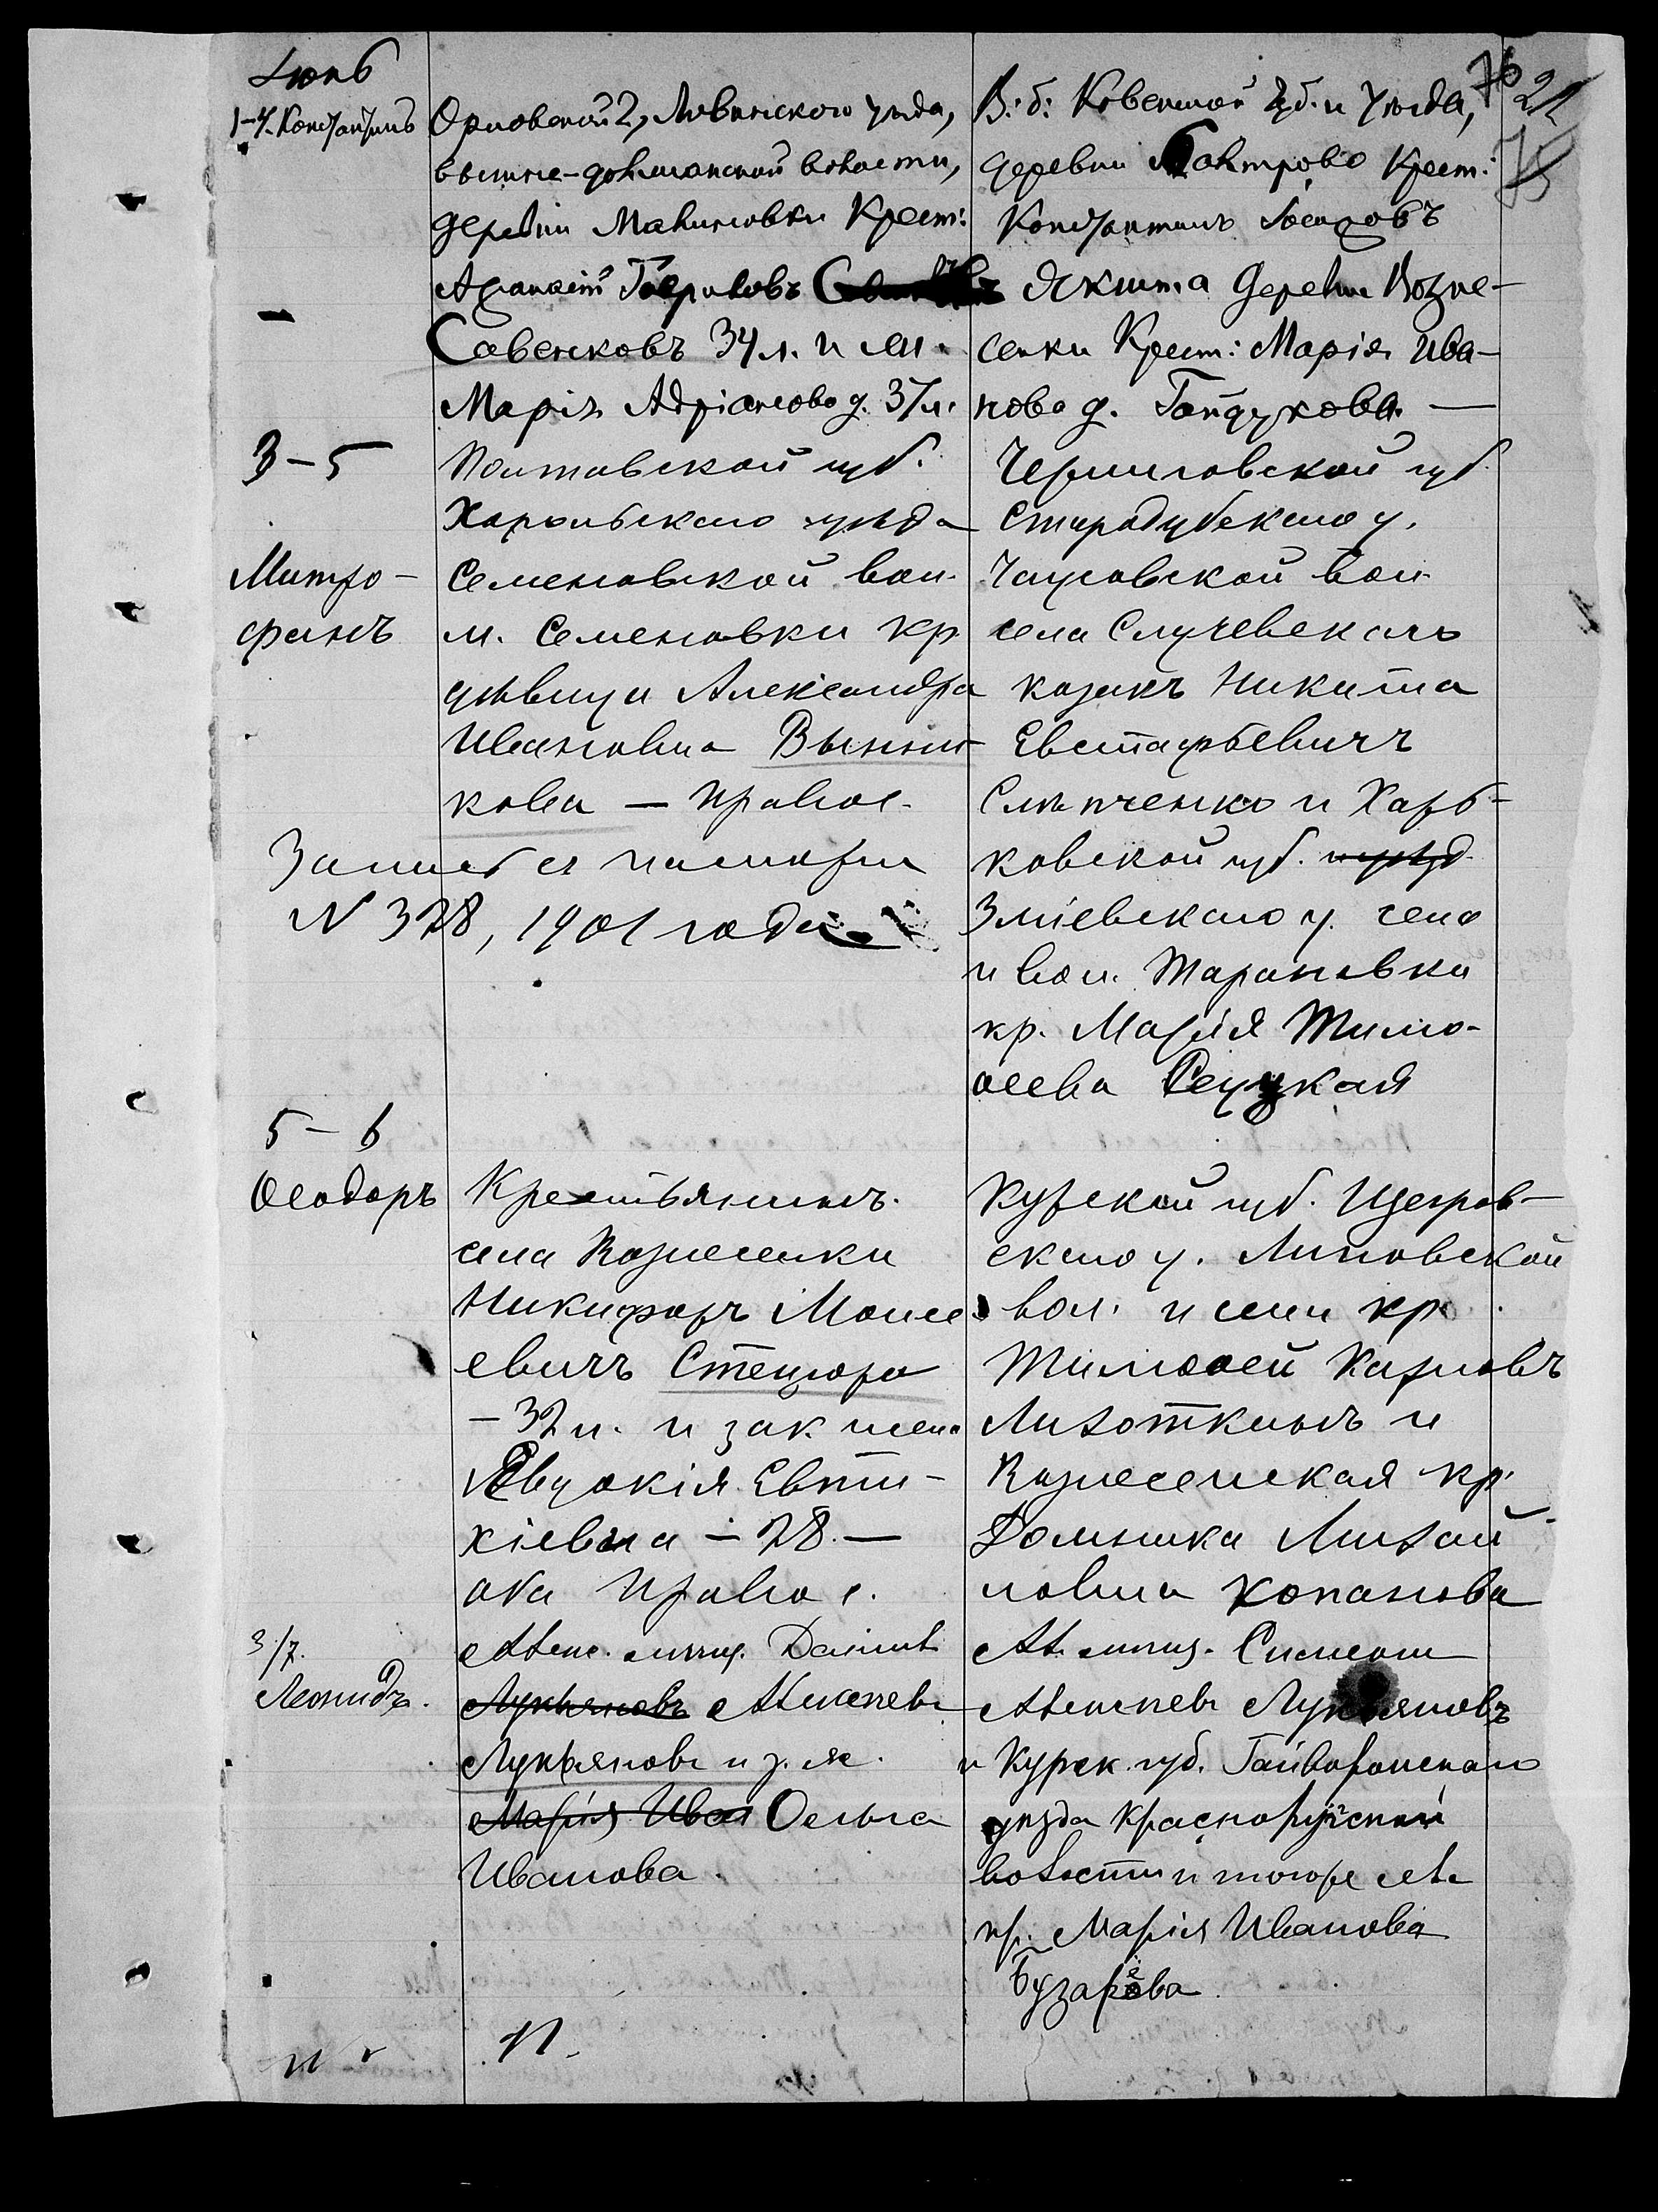 Іюнь
76
21
75
1-4. Константинъ
Орловской г., Ливенскаго уезда,
волости,
деревни Маниловки Крест:
Афанасій Гавриловъ
Савенковъ 34 л. и зак.
Марія Адріанова д. 37 л.
В: б: Ковенской Губ. и Уезда,
деревни Крест:
Константинъ Іосифовъ
Якшта деревни Возне-
сенки Крест: Марія Ива-
нова д. Гайдукова. —
3-5
Митро-
фанъ
Полтавской губ.
Хорольскаго уѣзда
Семеновской вол.
м. Семеновки кр.
дѣвица Александра
Ивановна Винни-
кова — правос.
Запись съ метр
N 328, 1901 года
Черниговской губ.
Стародубскаго у.
вол.
села Случевскаго
казакъ Никита
Евстафьевичъ
Слѣпченко и Харь-
ковской губ. уѣзд
Зміевскаго у. села
и вол. Тарановка
кр. Марія Тимо-
ѳеева Рецкая
5-6
Ѳеодоръ
Крестьянинъ
села Вознесенки
Никифоръ Моисе
евичъ Стецюра
-32 л. и зак. жена
Евдокія Евти-
хіевна - 28 —
оба правос.
Курской губ. Щегров-
скаго у. Липовской
вол. и села кр.
Тимоѳей Карповъ
Лихоткинъ и
Вознесенская кр.
Домника Михай
ловна Копанова
3/7.
Леонидъ.
Мелит. мѣщ. Даніилъ
Лукьяновъ Алексѣевъ
Лукьяновъ и з. ж.
Марія Иван Ольга
Иванова.
М. мѣщ. Симеонъ
Алексѣевъ Лукьяновъ
и Курск. губ. Гайворонскаго
уѣзда Краснояружской
волости и того же села
кр. Марія Иванова
Бузарева